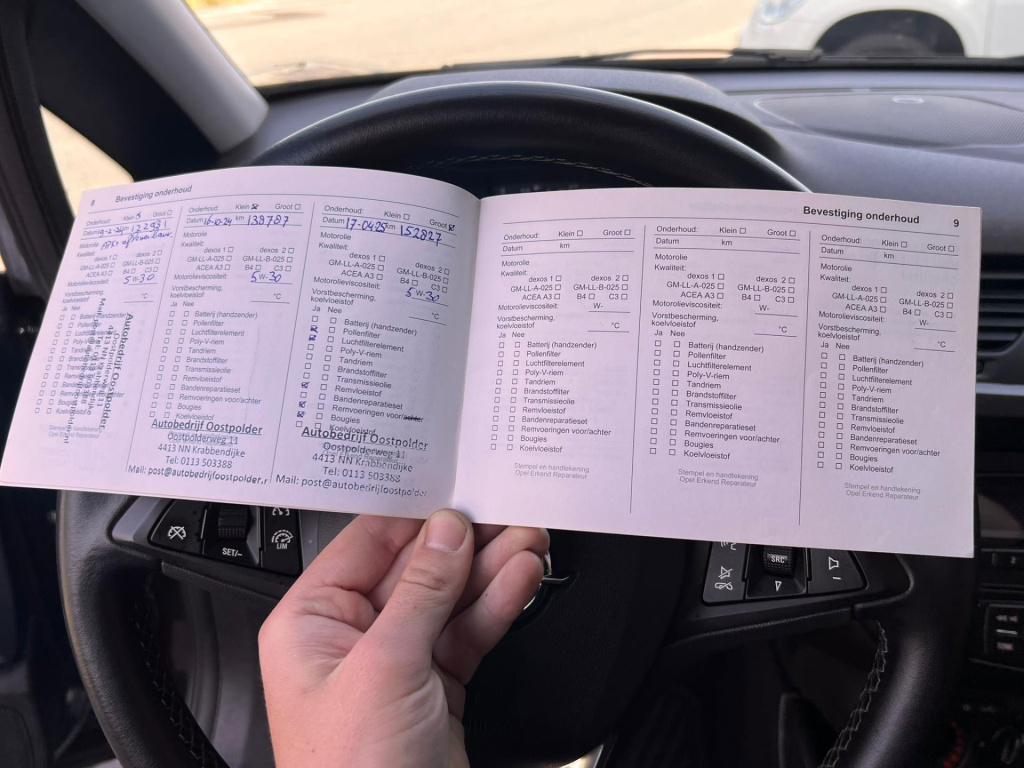 8 Bevestiging onderhoud
Onderhoud: Klein Groot
Datum km
Motorolie
Kwaliteit:
dexos 1 dexos 2
GM-LL-A-025 GM-LL-B-025
ACEA A3 B4 C3
Motorolieviscositeit:
Vorstbescherming,
koelvloeistof °C
Ja Nee
Batterij (handzender)
Pollenfilter
Luchtfilterelement
Poly-V-riem
Tandriem
Brandstoffilter
Transmissieolie
Remvloeistof
Autobedrijf Oostpolder
Onderhoud: Klein Groot
Datum 16-10-24 km 139787
Motorolie
Kwaliteit:
dexos 1 dexos 2
GM-LL-A-025 GM-LL-B-025
ACEA A3 B4 C3
Motorolieviscositeit: 5W-30
Vorstbescherming,
koelvloeistof °C
Ja Nee
Batterij (handzender)
Pollenfilter
Luchtfilterelement
Poly-V-riem
Tandriem
Brandstoffilter
Transmissieolie
Remvloeistof
Bandenreparatieset
Remvoeringen voor/achter
Bougies
Koelvloeistof
Autobedrijf Oostpolder
Oostpolderweg 11
4413 NN Krabbendijke
Tel: 0113 503388
Mail: post@autobedrijfoostpolder.
Onderhoud: Klein Groot
Datum 17-0425 km 152827
Motorolie
Kwaliteit:
dexos 1 dexos 2
GM-LL-A-025 GM-LL-B-025
ACEA A3 B4 C3
Motorolieviscositeit: 5W-30
Vorstbescherming,
koelvloeistof °C
Ja Nee
Batterij (handzender)
Pollenfilter
Luchtfilterelement
Poly-V-riem
Tandriem
Brandstoffilter
Transmissieolie
Remvloeistof
Bandenreparatieset
Remvoeringen voor/achter
Bougies
Koelvloeistof
Autobedrijf Oostpolder
Oostpolderweg 11
4413 NN Krabbendijke
Tel: 0113 503388
Mail: post@autobedrijfoostpolder
Bevestiging onderhoud 9
Onderhoud: Klein Groot
Datum km
Motorolie
Kwaliteit:
dexos 1 dexos 2
GM-LL-A-025 GM-LL-B-025
ACEA A3 B4 C3
Motorolieviscositeit: W-
Vorstbescherming,
koelvloeistof °C
Ja Nee
Batterij (handzender)
Pollenfilter
Luchtfilterelement
Poly-V-riem
Tandriem
Brandstoffilter
Transmissieolie
Remvloeistof
Bandenreparatieset
Remvoeringen voor/achter
Bougies
Koelvloeistof
Stempel en handtekening
Opel Erkend Reparateur
Onderhoud: Klein Groot
Datum km
Motorolie
Kwaliteit:
dexos 1 dexos 2
GM-LL-A-025 GM-LL-B-025
ACEA A3 B4 C3
Motorolieviscositeit: W-
Vorstbescherming,
koelvloeistof °C
Ja Nee
Batterij (handzender)
Pollenfilter
Luchtfilterelement
Poly-V-riem
Tandriem
Brandstoffilter
Transmissieolie
Remvloeistof
Bandenreparatieset
Remvoeringen voor/achter
Bougies
Koelvloeistof
Stempel en handtekening
Opel Erkend Reparateur
Onderhoud: Klein Groot
Datum km
Motorolie
Kwaliteit:
dexos 1 dexos 2
GM-LL-A-025 GM-LL-B-025
ACEA A3 B4 C3
Motorolieviscositeit: W-
Vorstbescherming,
koelvloeistof °C
Ja Nee
Batterij (handzender)
Pollenfilter
Luchtfilterelement
Poly-V-riem
Tandriem
Brandstoffilter
Transmissieolie
Remvloeistof
Bandenreparatieset
Remvoeringen voor/achter
Bougies
Koelvloeistof
Stempel en handtekening
Opel Erkend Reparateur
SET/-
LIM
SRC